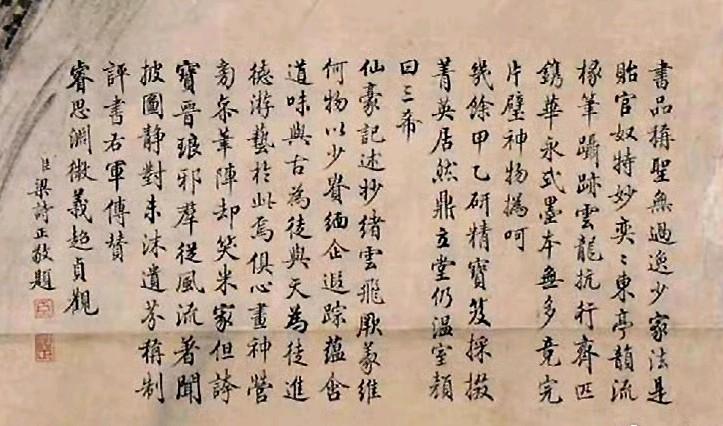 書品稱聖無過逸少家法是
貽官奴特妙奕〻東亭韻流
椽筆躡跡雲龍抗行齊匹
鐫華永式墨本無多竟完
片璧神物撝呵
幾餘甲乙研精寶笈採掇
菁英居然鼎立堂仍溫室顏
曰三希
仙豪記述玅緒雲飛厥義維
何物以少貴緬企遐踪蘊含
道味與古為徒與天為徒進
德游藝於此焉俱心畫神營
旁參筆陣却笑米家但誇
寶晉琅邪羣從風流著聞
披圖靜對未沫遺芬稱制
評書右軍傳贊
睿思淵微義超貞觀
臣梁詩正敬題